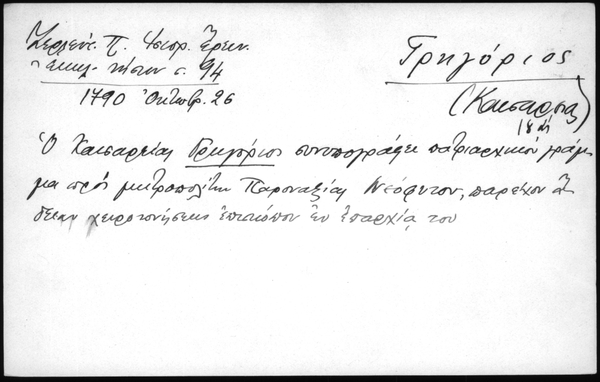 Ζερλέντ. Π. Ἱστορ. Ἔρευν.
ἐκκλ. νήσων σ. 94
1790 Ὀκτωβρ. 26
Γρηγόριος
(Καισαρείας)
Ὁ Καισαρείας Γρηγόριος συνυπογράφει πατριαρχικόν γράμ
μα πρός μητροπολίτην Παροναξίας Νεόφυτον, παρέχον ἄ
δειαν χειροτονήσεως ἐπισκόπου ἐν ἐπαρχίᾳ του